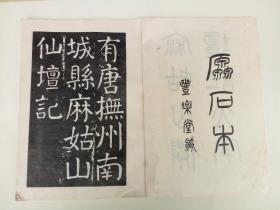 原石本
豐樂堂藏
有唐撫州南
城縣麻姑山
仙壇記